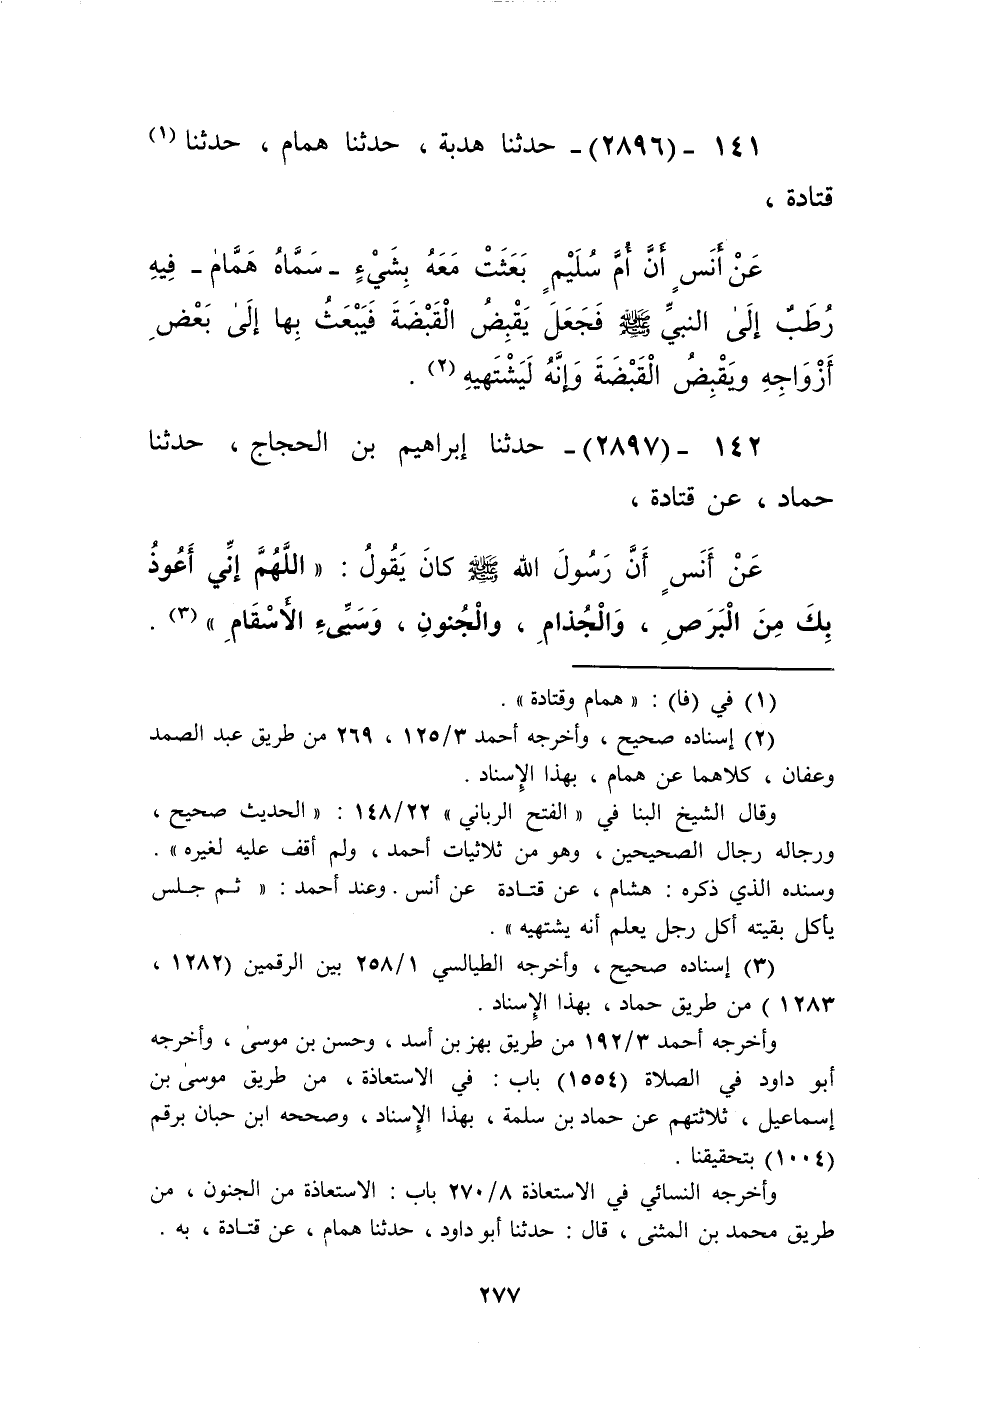 ١٤١ - (٢٨٩٦) - حدثنا هدبة ، حدثنا همام ، حدثنا (١)
قتادة ،
عَنْ أَنَسٍ أَنَّ أُمَّ سُلَيْمٍ بَعَثَتْ مَعَهُ بِشَيْءٍ - سَمَّاهُ هَمَّامٌ - فِيهِ
رُطَبٌ إِلَىٰ النبيِّ ﷺ فَجَعَلَ يَقْبِضُ الْقَبْضَةَ فَيَبْعَثُ بِها إِلَىٰ بَعْضِ
أَزْوَاجِهِ ويَقْبِضُ الْقَبْضَةَ وَإِنَّهُ لَيَشْتَهِيهِ (٢) .
١٤٢ - (٢٨٩٧) - حدثنا إبراهيم بن الحجاج ، حدثنا
حماد ، عن قتادة ،
عَنْ أَنَسٍ أَنَّ رَسُولَ الله ﷺ كانَ يَقُولُ : « اللَّهُمَّ إِنِّي أَعُوذُ
بِكَ مِنَ الْبَرَصِ ، وَالْجُذامِ ، والْجُنونِ ، وَسَيِّىءِ الأَسْقَامِ » (٣) .
(١) في (فا) : « همام وقتادة » .
(٢) إسناده صحيح ، وأخرجه أحمد ٣/١٢٥ ، ٢٦٩ من طريق عبد الصمد
وعفان ، كلاهما عن همام ، بهذا الإسناد .
وقال الشيخ البنا في « الفتح الرباني » ٢٢/١٤٨ : « الحديث صحيح ،
ورجاله رجال الصحيحين ، وهو من ثلاثيات أحمد ، ولم أقف عليه لغيره » .
وسنده الذي ذكره : هشام ، عن قتادة عن أنس . وعند أحمد : « ثم جلس
يأكل بقيته أكل رجل يعلم أنه يشتهيه » .
(٣) إسناده صحيح ، وأخرجه الطيالسي ١/٢٥٨ بين الرقمين (١٢٨٢ ،
١٢٨٣ ) من طريق حماد ، بهذا الإسناد .
وأخرجه أحمد ٣/١٩٢ من طريق بهز بن أسد ، وحسن بن موسىٰ ، وأخرجه
أبو داود في الصلاة (١٥٥٤) باب : في الاستعاذة ، من طريق موسىٰ بن
إسماعيل ، ثلاثتهم عن حماد بن سلمة ، بهذا الإسناد ، وصححه ابن حبان برقم
(١٠٠٤) بتحقيقنا .
وأخرجه النسائي في الاستعاذة ٨/٢٧٠ باب : الاستعاذة من الجنون ، من
طريق محمد بن المثنى ، قال : حدثنا أبو داود ، حدثنا همام ، عن قتادة ، به .
٢٧٧